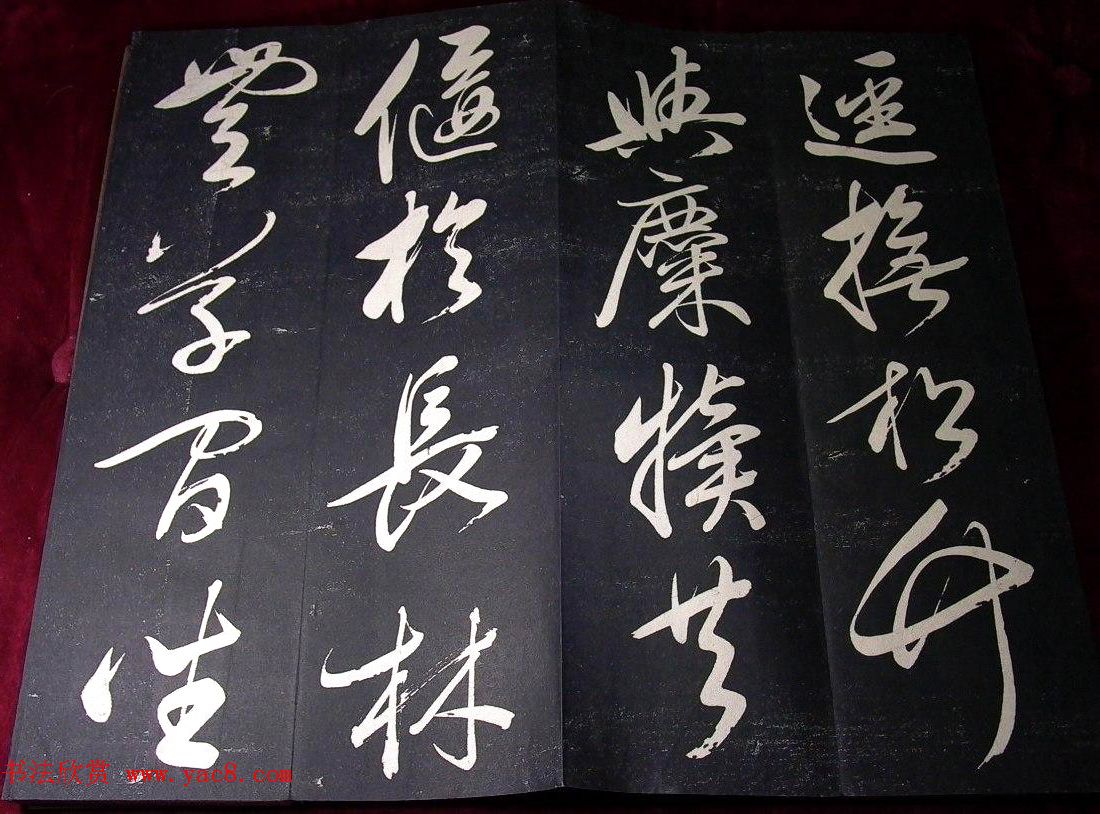 逕撫松竹
與麋犢共
偃於長林
豐草間坐
书法欣赏 www.yac8.com